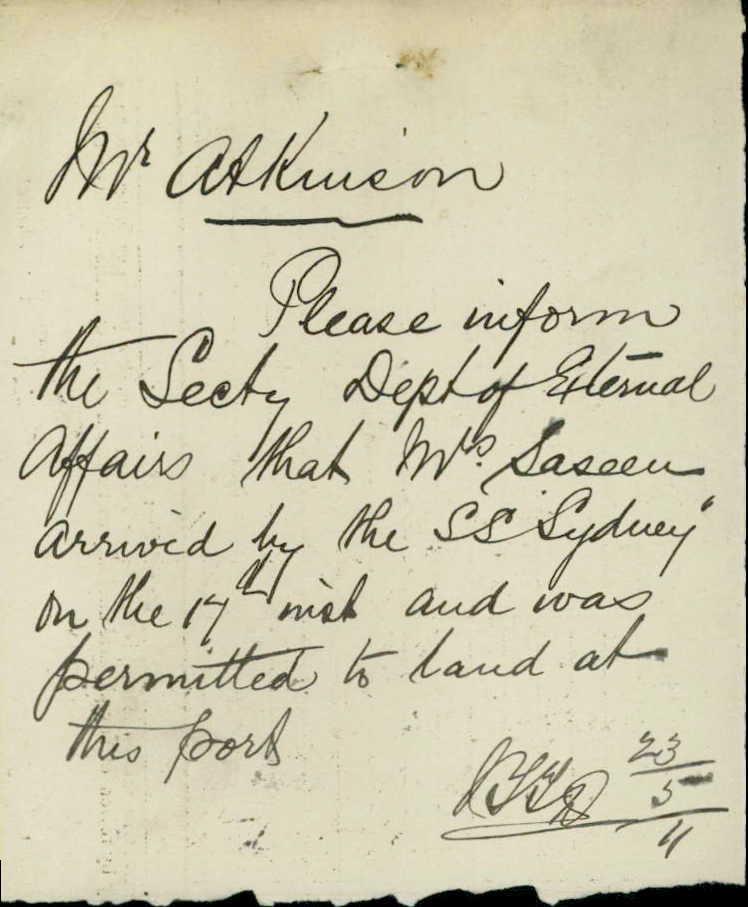 Mr Atkinson
Please inform
the Secty Dept of External
Affairs that Mrs. Saseen
arrived by the SS "Sydney"
on the 17th inst and was
permitted to land at
this port
23
5
11